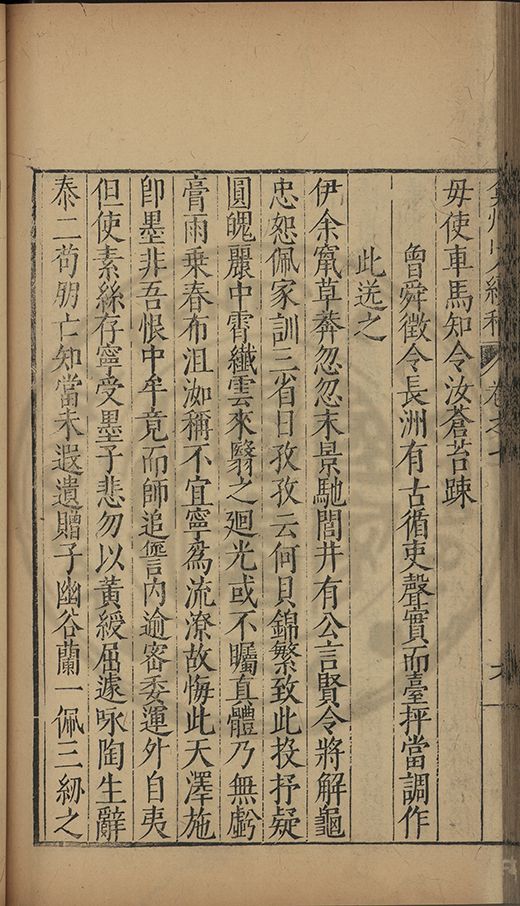 毋使車馬知令汝蒼苔踈
曾舜徵令長洲有古循吏聲實而臺抨當調作
此送之
伊余竄草莽忽忽末景馳閭井有公言賢令將解龜
忠恕佩家訓三省日孜孜云何貝錦繁致此投抒疑
圓魄麗中霄纖雲來翳之廻光或不矚直體乃無虧
膏雨乘春布沮洳稱不宜寧爲流潦故悔此天澤施
卽墨非吾恨中牟竟而師追訾內逾密委運外自夷
但使素絲存寧受墨子悲勿以黃綬屈遽咏陶生辭
泰二苟朋亡知當未遐遺贈子幽谷蘭一佩三紉之